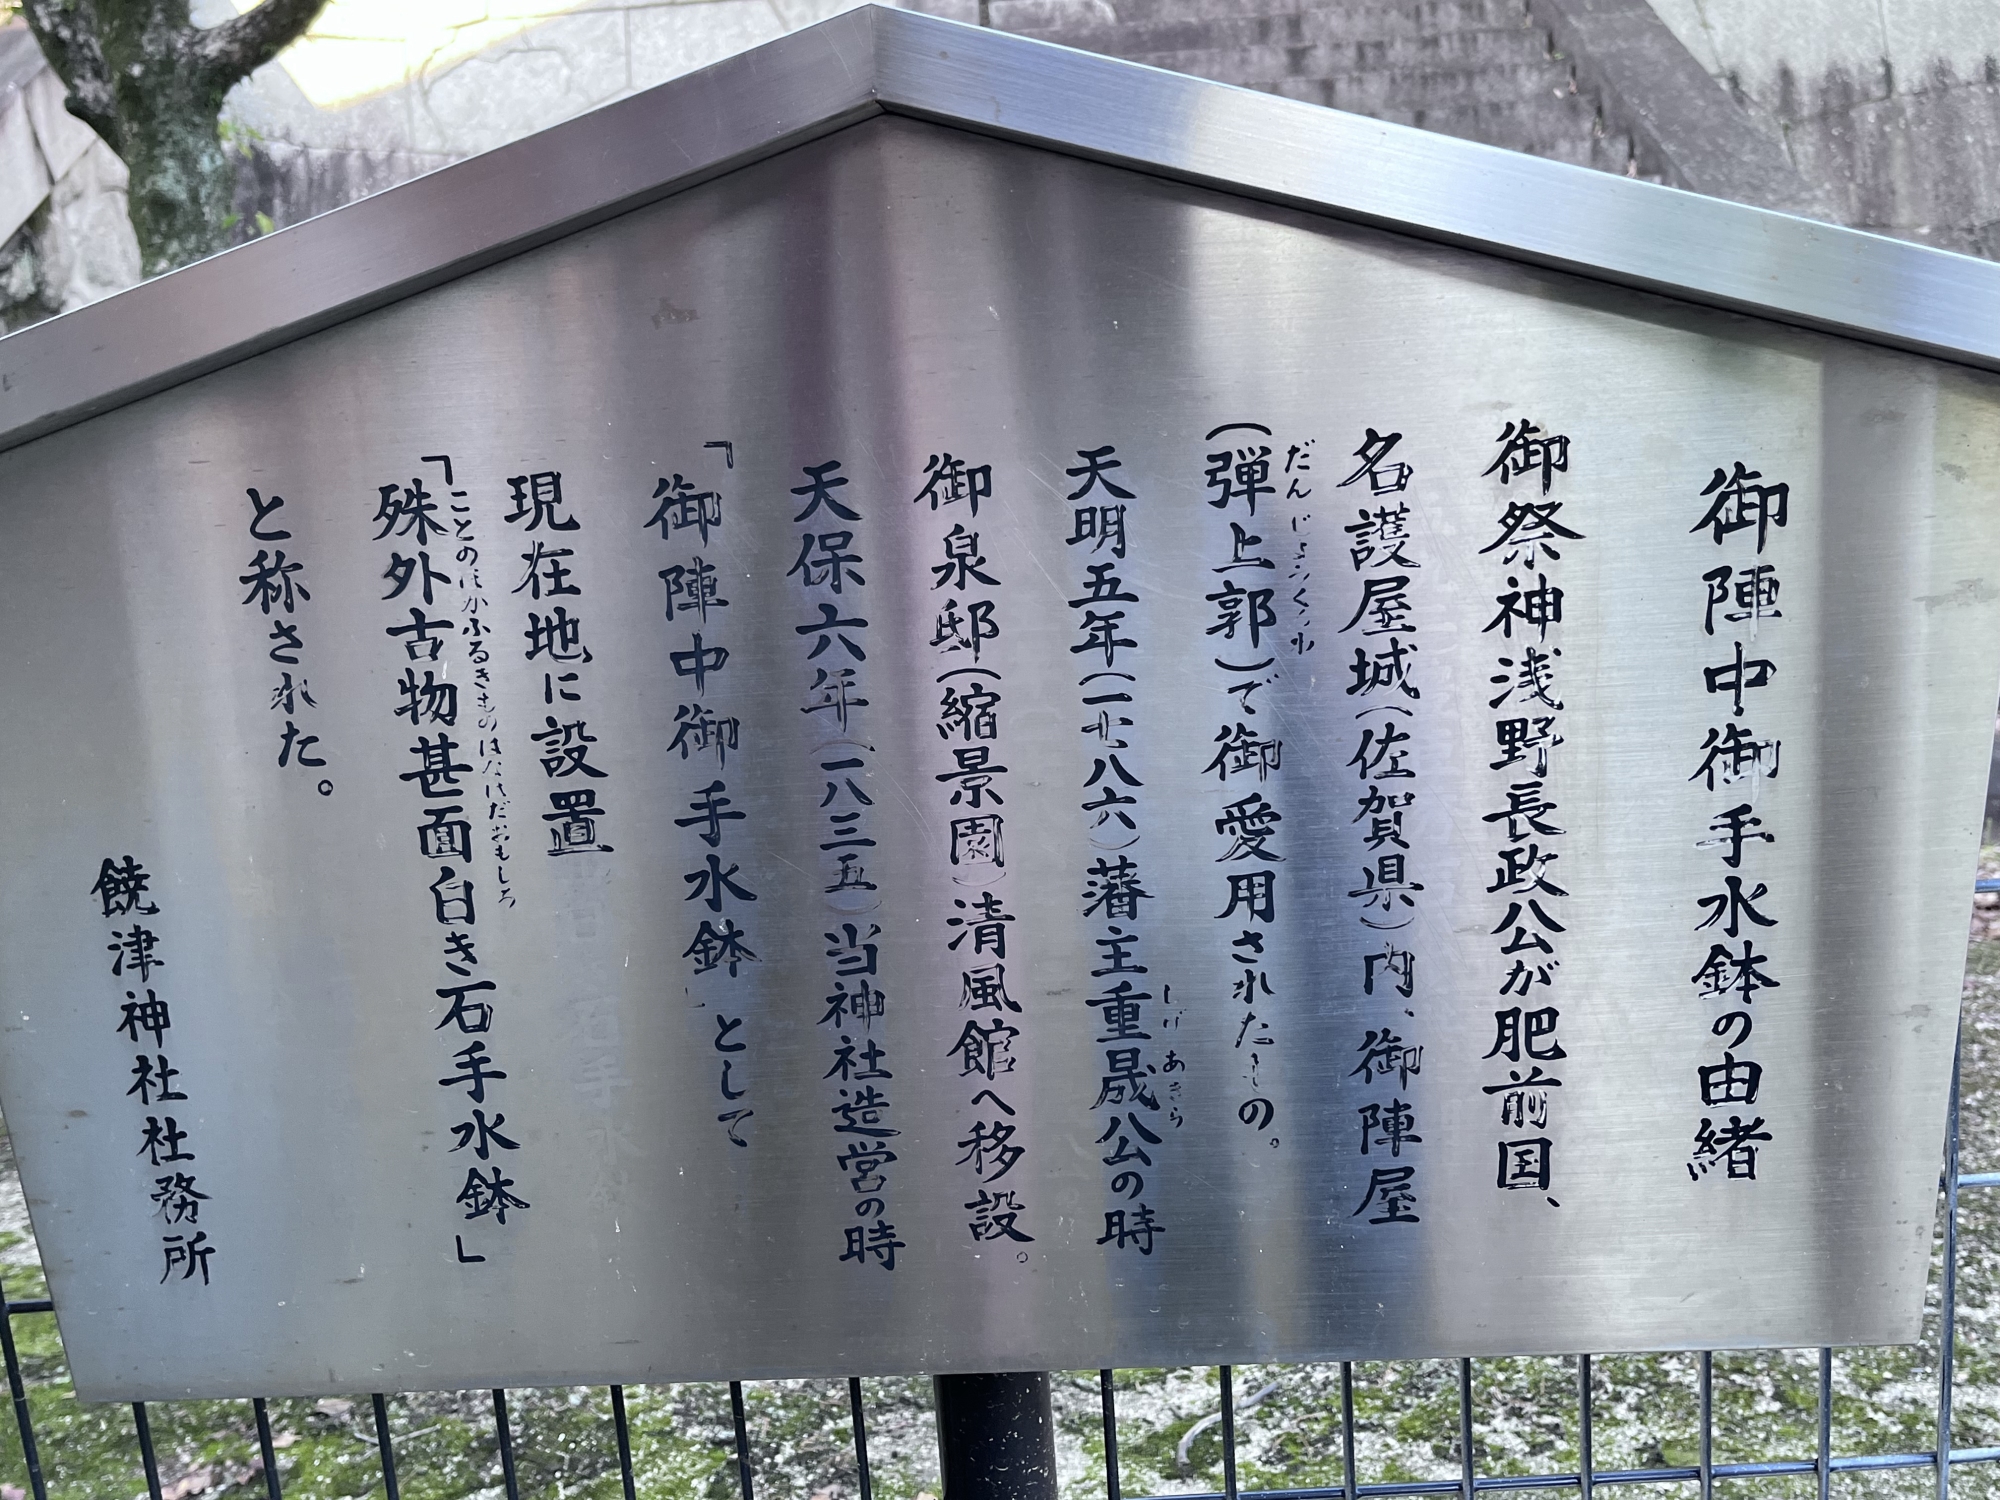 御陣中御手水鉢の由緒
御祭神浅野長政公が肥前国、
名護屋城(佐賀県)内、御陣屋
(弾上郭)で御愛用されたもの。
だんじょうくるわ
天明五年(一七八六)藩主重晟公の時
しげあきら
御泉邸(縮景園)清風館へ移設。
天保六年(一八三五)当神社造営の時
「御陣中御手水鉢」として
現在地に設置
「殊外古物甚面白き石手水鉢」
ことのほかふるきものはなはだおもしろ
と称された。
饒津神社社務所